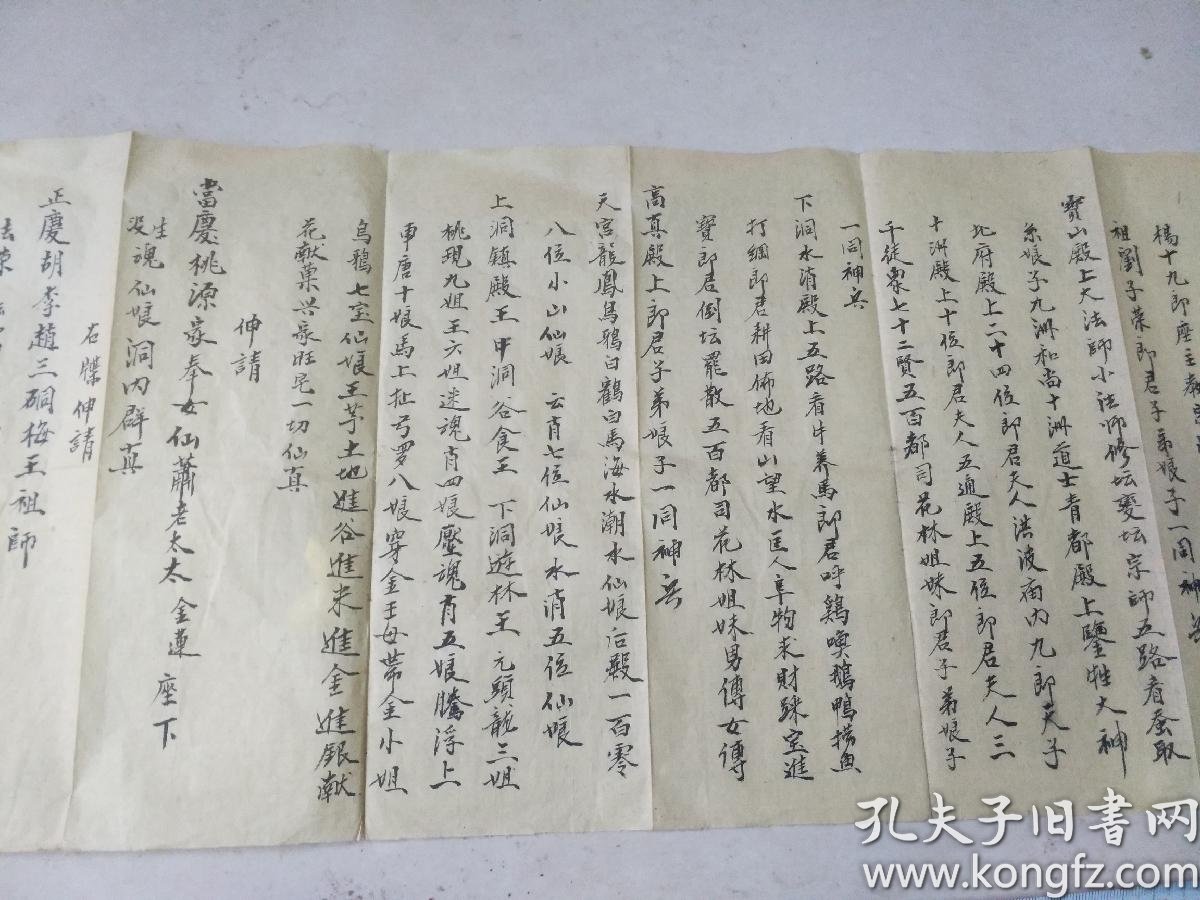 楊十九郎座主
祖劉子荣郎君子弟娘子一同神兵
寶山殿上大法師小法师修坛变坛宗師五路看蚕取
魚娘子九洲和尚十洲道士青都殿上鑒牲大神
北府殿上二十四位郎君夫人洪波庙内九郎天子
十洲殿上十位郎君夫人五通殿上五位郎君夫人三
千徒眾七十二賢五百都司花林姐妹郎君子弟娘子
一同神兵
下洞水消殿上五路看牛养馬郎君呼鷄喚鵝鴨撈魚
打綱郎君耕田佈地看山望水匡人阜物求財踩宝進
寶郎君倒坛罷散五百都司花林姐妹男傳女傳
高真殿上郎君子弟娘子一同神兵
天宫龍鳳烏鴉白鶴白馬海水潮水仙娘后殿一百零
八位小山仙娘 云肖七位仙娘水消五位仙娘
上洞鎮殿王甲洞谷食王 下洞遊林王 元頭龍三姐
桃現九姐王六姐迷魂肖四娘壓魂肖五娘騰浮上
申唐十娘馬上扯弓罗八娘穿金王母带金小姐
烏鴉七宝仙娘王芋土地進谷進米進金進銀献
花献菓兴家旺宅一切仙真
伸請
當慶桃源家奉女仙蕭老太太金蓮座下
生
没魂仙娘洞内群真
右牒伸請
正慶胡李趙三硐梅王祖師